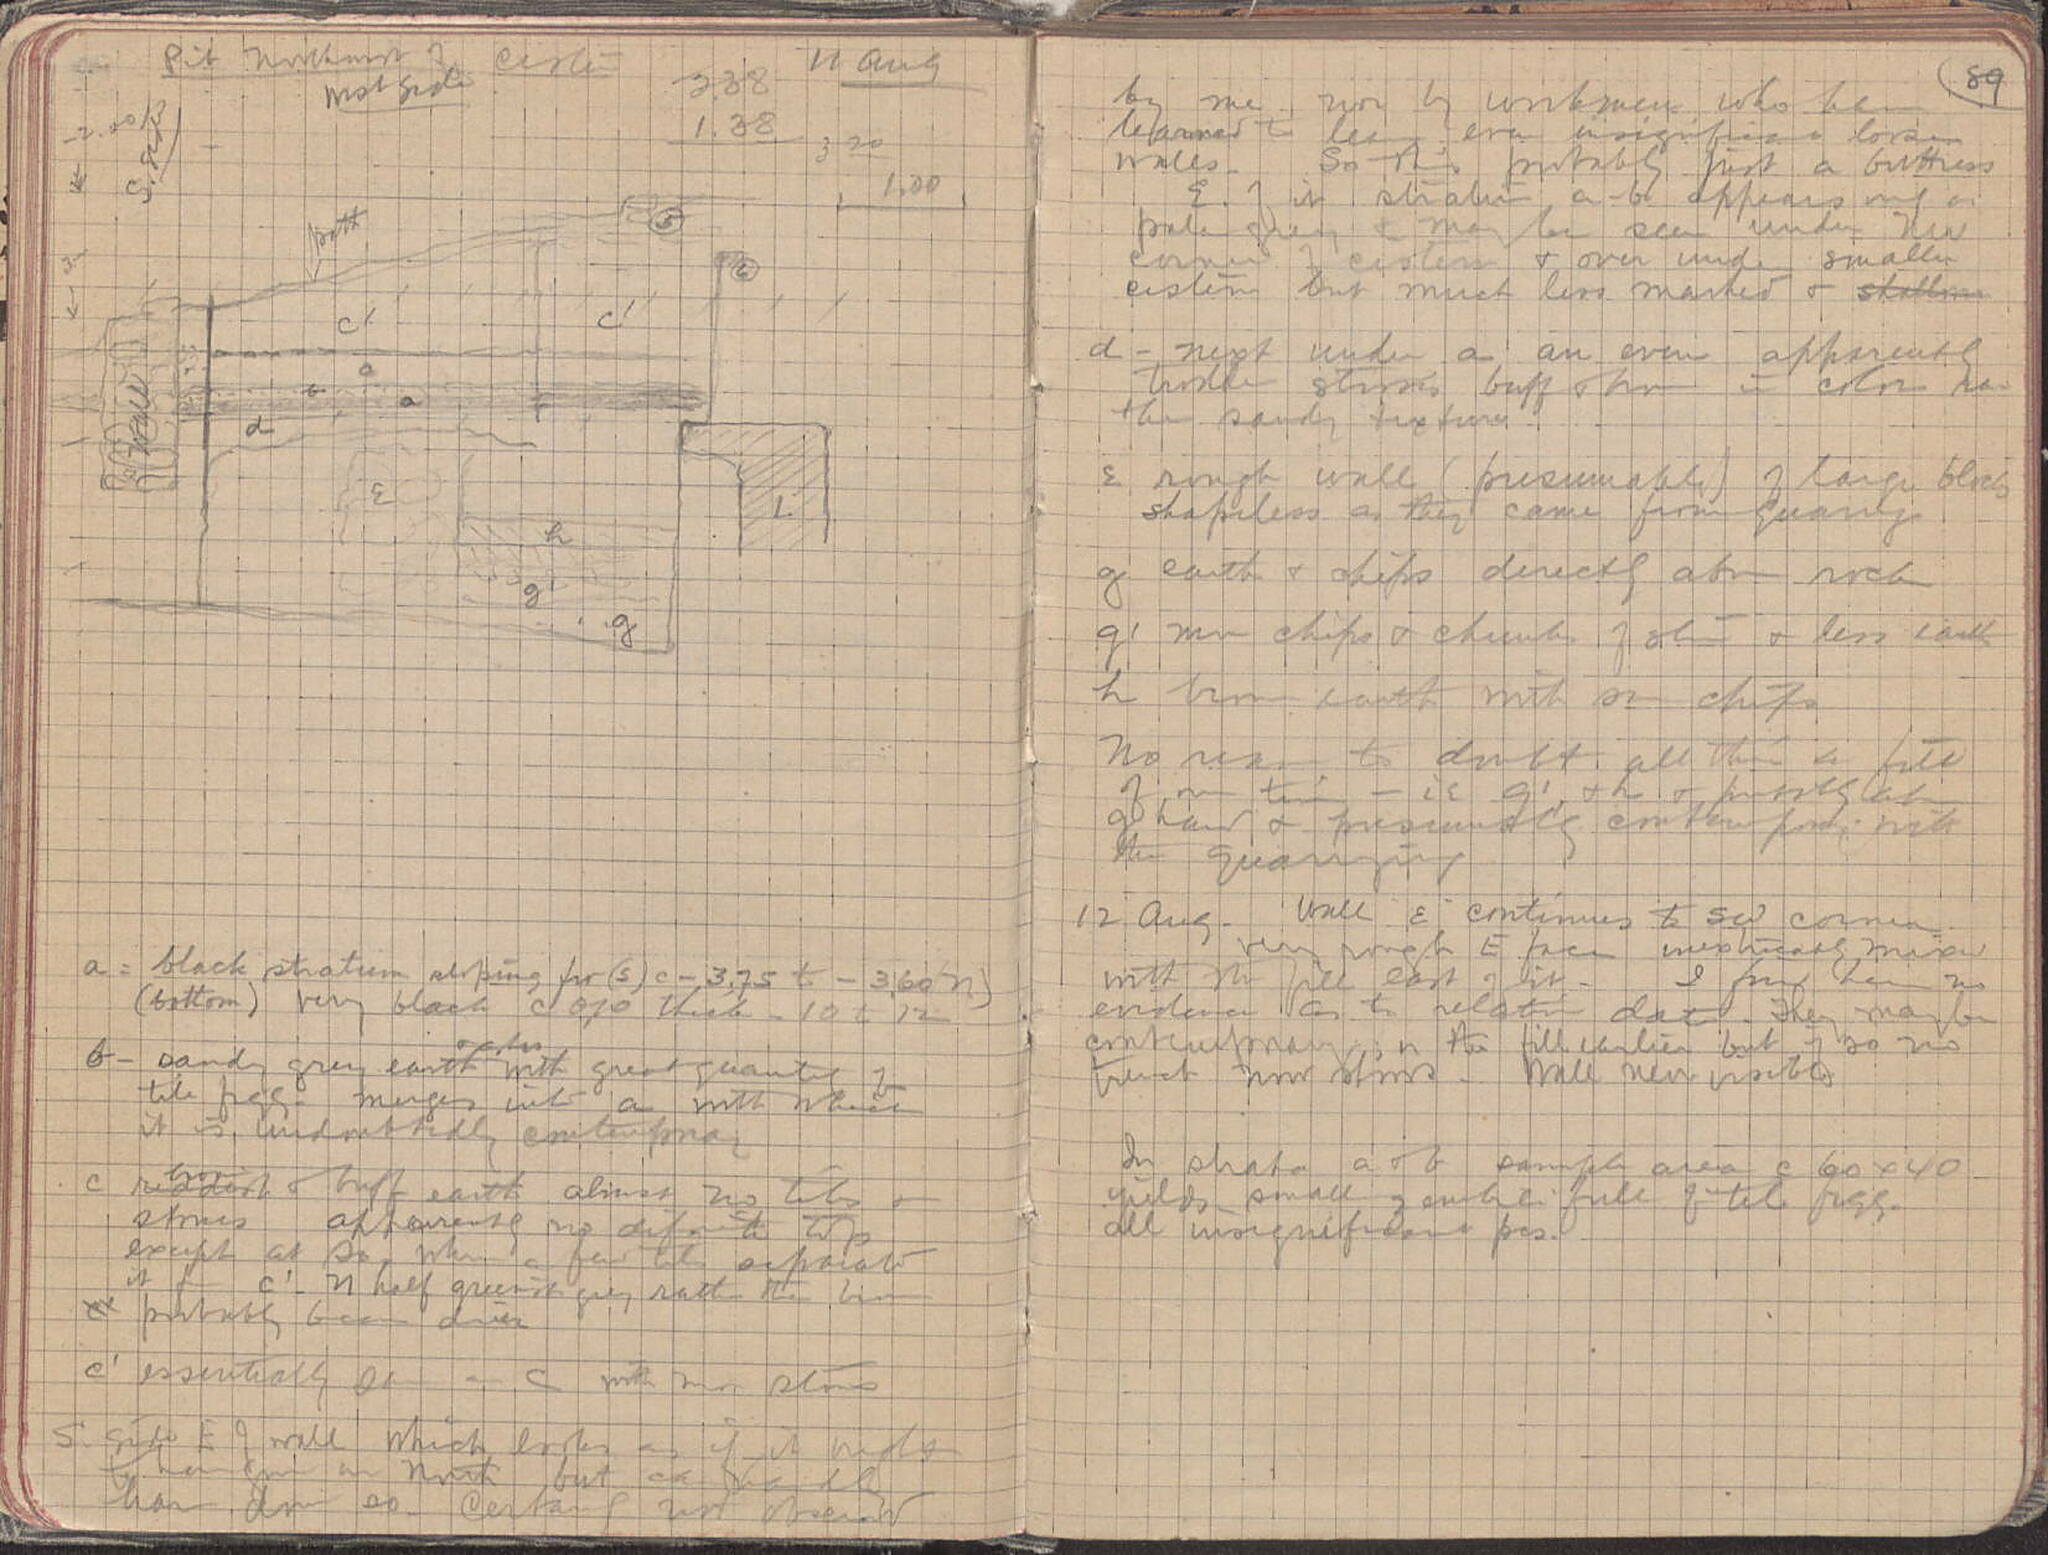 Pit Northwest of Cistern 11 Aug
West Side
3.38
1.38
3 20
1.00
-2.00
path
5
6
3-
c' c'
a
b
a
d
wall
ε
h
g'
g
L
a = black stratum sloping fr (S) c -3.75 to -3.60 (N)
(bottom) very black c 0.10 thick - 10 to 12
b - sandy grey earth & ashes with great quantity of
tile fragg. merges into a with which
it is undoubtedly contemporary
c brown & buff earth almost no tiles or
stones apparently no definite top
except at So. where a few tiles separate
it from c' - N half greenish grey rather than brown
probably because drier
c' essentially same as c with more stones
S. side E of wall which looks as if it ought
to have gone on North but can hardly
have done so. Certainly not observed
89
by me nor by workmen who have
learned to leave even insignificant loose
walls. So this probably just a buttress
E. of it stratum a-b appears only as
pale grey & may be seen under NW
corner of cistern & over under smaller
cistern but much less marked & shallow
d - next under a an even apparently
trodden stratum buff & brown in color
sandy texture
ε rough wall (presumably) of large blocks
shapeless as they came from quarry
g earth & chips directly above rock
g' more chips & chunks of stone & less earth
h brown earth with some chips
No reason to doubt all this is fill
of one time - i.e. g', & h & possibly also
g hard & presumably contemporary with
the quarrying
12 Aug. Wall ε continues to SW corner.
very rough E face inextricably mixed
with the fill east of it - I find here no
evidence as to relative date. They may be
contemporary, or the fill earlier but if so no
trench now shows. Wall never visible
In strata a & b sample area c 60 x 40
yields small zembili full of tile fragg.
all insignificant pcs.